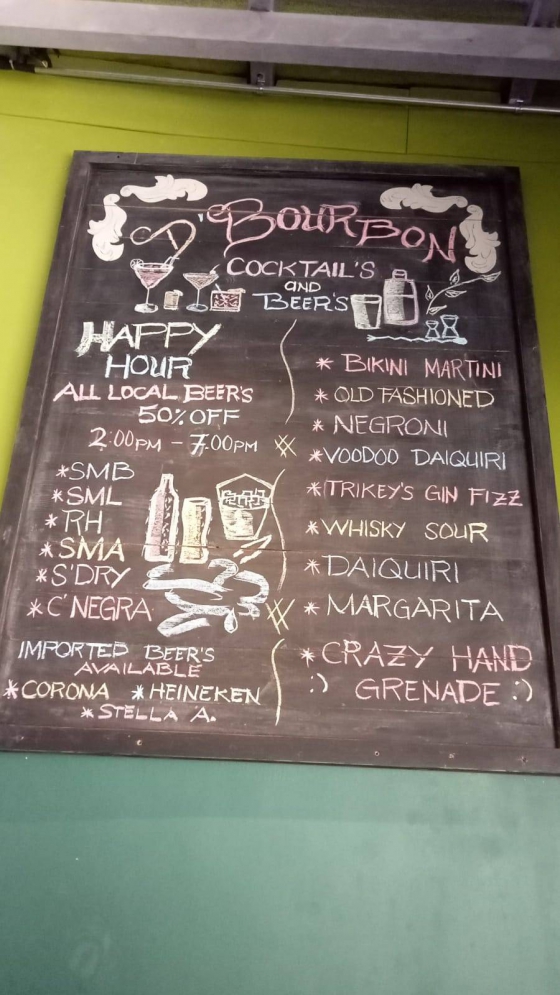 D' BOURBON
COCKTAIL'S
AND
BEER'S
HAPPY
HOUR
ALL LOCAL BEER'S
50% OFF
2:00PM - 7:00PM
*SMB
*SML
*RH
*SMA
*S'DRY
*C'NEGRA
IMPORTED BEER'S
AVAILABLE
*CORONA *HEINEKEN
*STELLA A.
* BIKINI MARTINI
* OLD FASHIONED
* NEGRONI
*VOODOO DAIQUIRI
*TRIKEY'S GIN FIZZ
*WHISKY SOUR
*DAIQUIRI
* MARGARITA
*CRAZY HAND
:) GRENADE :)